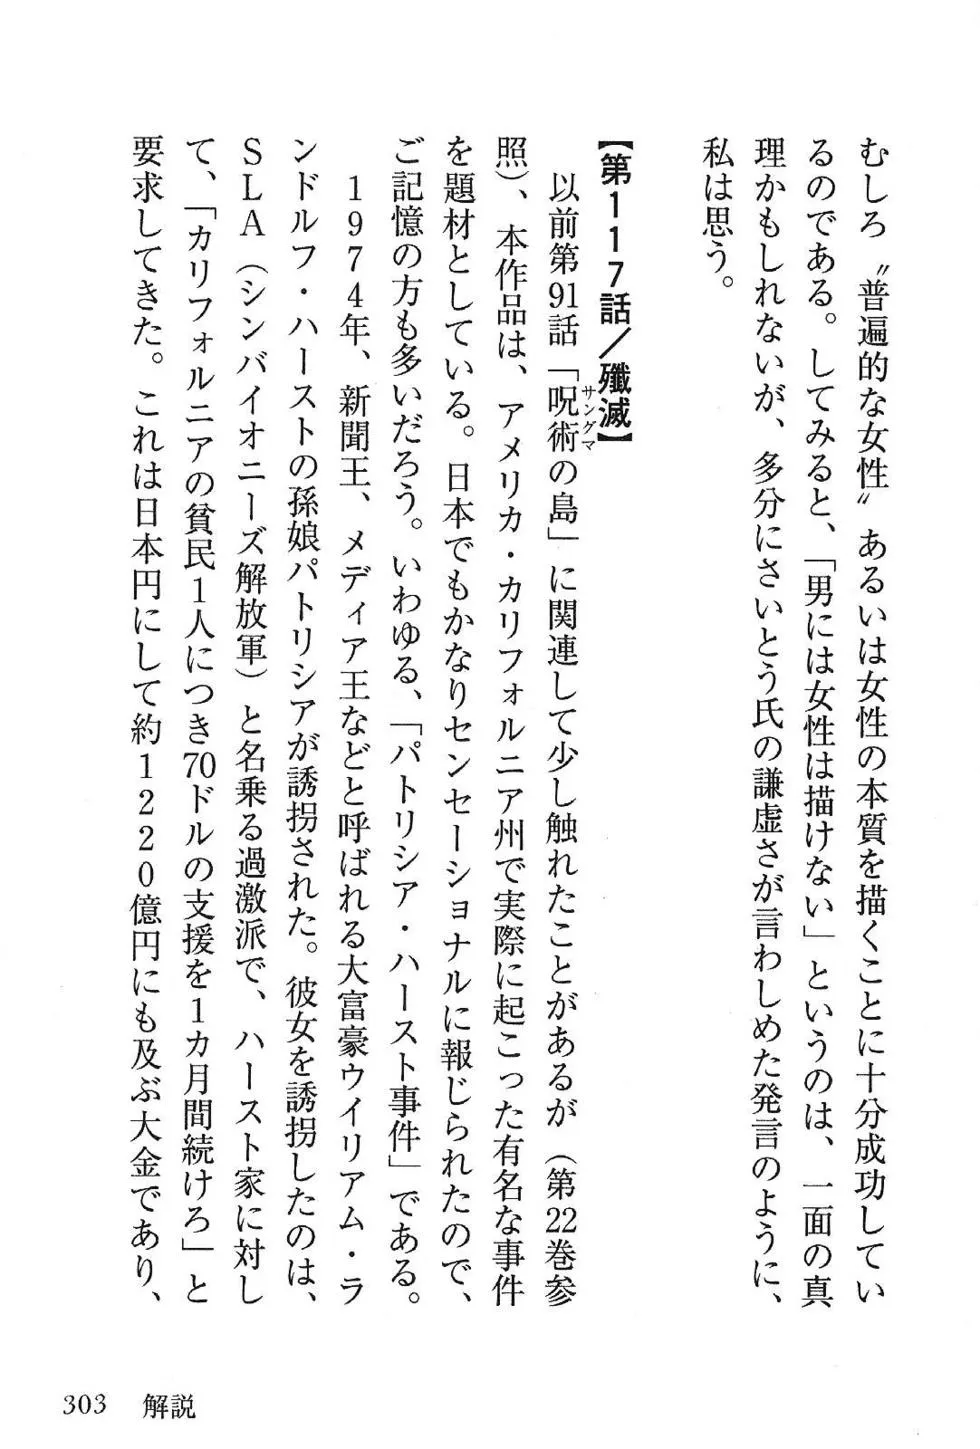 むしろ〝普遍的な女性〟あるいは女性の本質を描くことに十分成功してい
るのである。してみると、「男には女性は描けない」というのは、一面の真
理かもしれないが、多分にさいとう氏の謙虚さが言わしめた発言のように、
私は思う。
【第117話／殲滅】
以前第91話「呪術の島」に関連して少し触れたことがあるが（第22巻参
サングマ
照）、本作品は、アメリカ・カリフォルニア州で実際に起こった有名な事件
を題材としている。日本でもかなりセンセーショナルに報じられたので、
ご記憶の方も多いだろう。いわゆる、「パトリシア・ハースト事件」である。
1974年、新聞王、メディア王などと呼ばれる大富豪ウイリアム・ラ
ンドルフ・ハーストの孫娘パトリシアが誘拐された。彼女を誘拐したのは、
SLA（シンバイオニーズ解放軍）と名乗る過激派で、ハースト家に対し
て、「カリフォルニアの貧民1人につき70ドルの支援を1カ月間続けろ」と
要求してきた。これは日本円にして約1220億円にも及ぶ大金であり、
303 解説